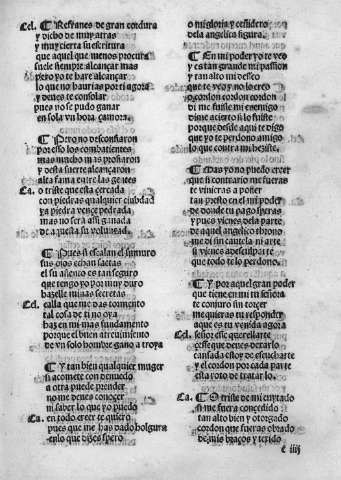 Cel. ¶ Refranes de gran cordura
y dicho de muy atras
y muy cierta su escritura
que aquel que menos procura
suele siempre alcançar mas
pero yo te hare alcançar
lo que haurias por ti agora
y deues te consolar
pues no se pudo ganar
en sola vn hora çamora.
¶ Pero no desconfiaron
por esso los combatientes
mas mucho mas
y desta suerte alcançaron
alta fama entre las gentes
Ca. o triste que esta cercada
con piedras qualquier ciudad
y a piedra vence pedrada
mas no sera assi ganada
de aquesta su voluntad.
¶ Pues si escalan el su muro
sus ojos echan saetas
el su es tan seguro
que tengo yo por muy duro
hazelle minas secretas
Cel. calla que me das tormento
tal cosa de ti no oya
haz en mi mas fundamento
porque el buen atreuimiento
de vn solo hombre gano a troya
¶ Y tan bien qualquier muger
si acomete con denuedo
a otra puede prender
no me deues conocer
ni saber lo que yo puedo
Ca. en todo creer te quiero
pues que me has dado holgura
en lo que dizes spero
o mi gloria y
de la angelica figura.
¶ En mi poder yo te veo
y es tan grande mi passion
y tan alto mi desseo
que te veo y no lo creo
o cordon cordon cordon
di me fuiste mi enemigo
dime acierto si lo fuiste
porque desde aqui te digo
que yo te perdono amigo
lo que contra mi heziste.
¶ Mas yo no puedo creer
que si contrario me fueras
te vinieras a poner
tan presto en el mi poder
de donde tu pago speras
y pues vienes de la parte
de aquel angelico throno
me di sin cautela ni arte
si vienes a desculparte
que todo te lo perdono.
¶ Y por aquel gran poder
que tiene en mi tu señora
te conjuro sin torcer
me quieras tu responder
a que es tu venida agora
Cel. señor esse querellarte
cesse que deues dexarlo
cansada estoy de escucharte
y el cordon por cada parte
esta roto de tratarlo.
Ca. ¶ O triste de mi cuytado
si me fuera concedido
tan alto bien y otorgado
cordon que fueras obrado
de mis braços y texido
c iiij